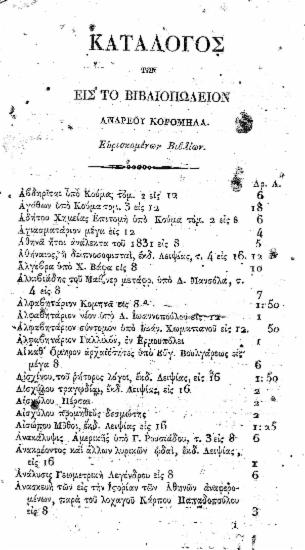 ΚΑΤΑΛΟΓΟΣ
ΤΩΝ
ΕΙΣ ΤΟ ΒΙΒΛΙΟΠΩΛΕΙΟΝ
ΑΝΔΡΕΟΥ ΚΟΡΟΜΗΛΑ.
Εὑρισκομένων Βιβλίων.
Δρ. Λ.
Ἀβδηρῖται ὑπὸ Κούμα, τόμ. 2 εἰς 12 6
Ἀγάθων ὑπὸ Κούμα τομ. 3 εἰς 12 18
Ἀδήτου Χημείας Ἐπιτομὴ ὑπὸ Κούμα τομ. 2 εἰς 8 6
Ἁγιασματάριον μέγα εἰς 12 4
Ἀθηνᾶ ἤτοι ἀνάλεκτα τοῦ 1831 εἰς 8 5
Ἀθήναιος, ἢ δειπνοσοφισταὶ, ἐκδ. Λειψίας, τ. 4 εἰς 16. 12
Ἄλγεβρα ὑπὸ Χ. Βάφα εἰς 8 10
Ἀλκιβιάδης τοῦ Μαϊσνερ μετάφρ. ὑπὸ Δ. Μανσόλα, τ.
4 εἰς 8 7
Ἀλφαβητάριον Κομηνᾶ εἰς 8 1:50
Ἀλφαβητάριον νέον ὑπὸ Δ. Ἰωαννοπούλου εἰς 12 1
Ἀλφαβητάριον σύντομον ὑπὸ Ἰωάν. Χωματιανοῦ εἰς 12. 50
Ἀλφαβητάριον Γαλλικὸν, ἐν Ἑρμουπόλει 1
Αἱ καθ' Ὅμηρον ἀρχαιότητες ὑπὸ Εὐγ. Βουλγάρεως εἰς
μέγα 8 6
Αἰσχίνου, τοῦ ῥήτορος λόγοι, ἐκδ. Λειψίας, εἰς 16 1:50
Αἰσχύλου τραγῳδίαι, ἐκδ. Λειψίας, εἰς 16. 2
Αἰσχύλου Πέρσαι 2
Αἰσχύλου προμηθεὺς δεσμώτης 2
Αἰσώπου Μῦθοι, ἐκδ. Λειψίας εἰς 16 1:25
Ἀνακάλυψις Ἀμερικῆς ὑπὸ Γ. Ῥουσιάδου, τ. 3 εἰς 8 6
Ἀνακρέοντος καὶ ἄλλων λυρικῶν ᾠδαὶ, ἐκδ. Λειψίας,
εἰς 16 1
Ἀνάλυσις Γεωμετρικὴ Λεγένδρου εἰς 8 6
Ἀνασκευὴ τῶν εἰς τὴν ἱστορίαν τῶν Ἀθηνῶν ἀναφερο-
μένων, παρὰ τοῦ λοχαγοῦ Κάρπου Παπαδοπούλου
εἰς 8 3